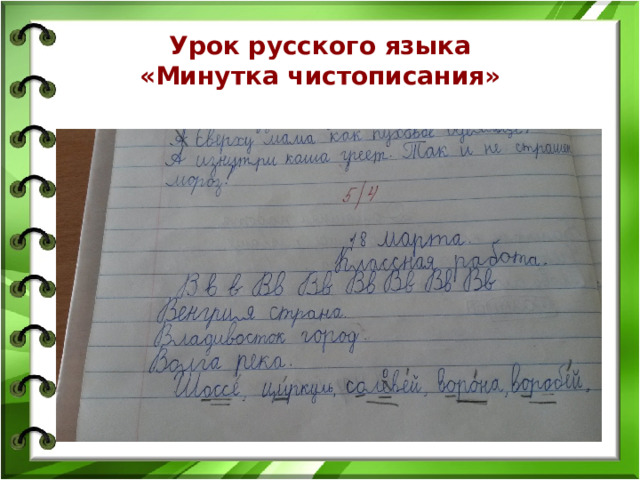 Урок русского языка
«Минутка чистописания»
Сверху мама как пуховое
А изнутри каша греет. Так и не страшен
мороз!
5/4
18 марта.
Классная работа.
В в в Вв Вв Вв Вв Вв Вв
Венгрия страна
Владивосток город.
Волга река.
Шоссе, циркуль, соловей, ворона, воробей.